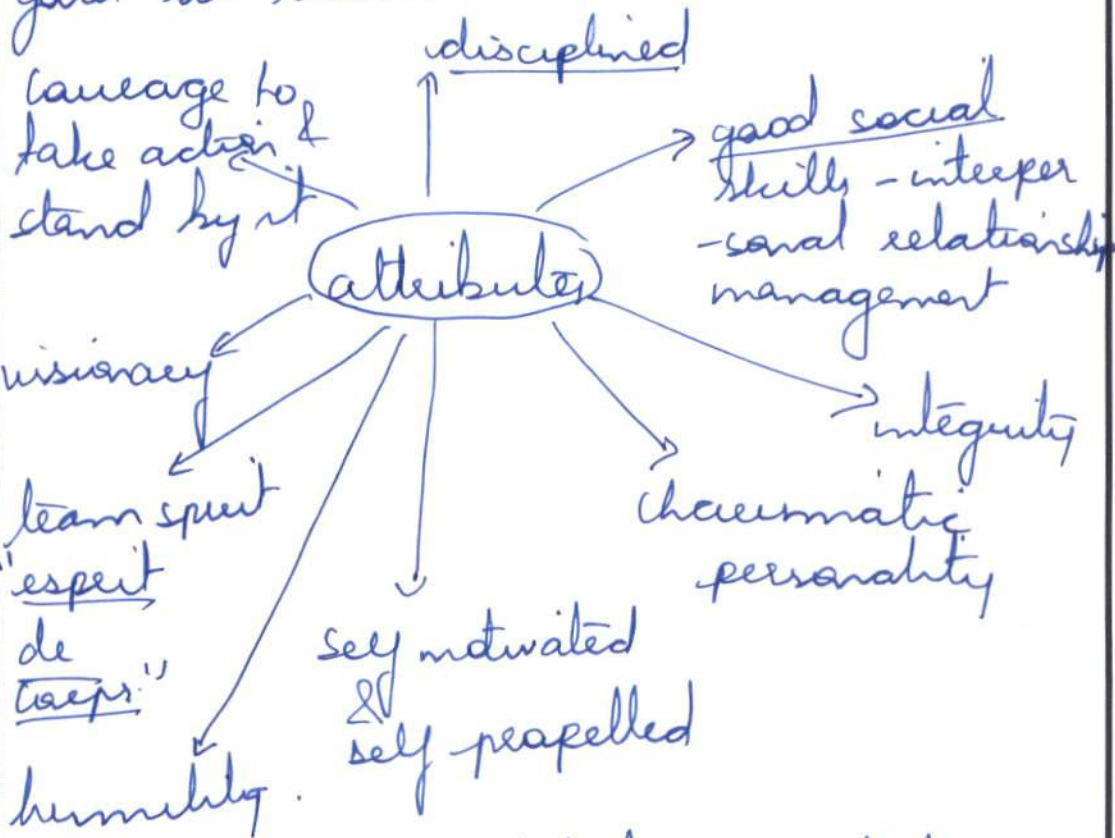 disciplined
courage to
take action &
stand by it
good social
skills - interper
-sonal relationship
management
attributes
visionary
integrity
team spirit
"esprit
de
corps."
charismatic
personality
self motivated
&
self propelled
humility.